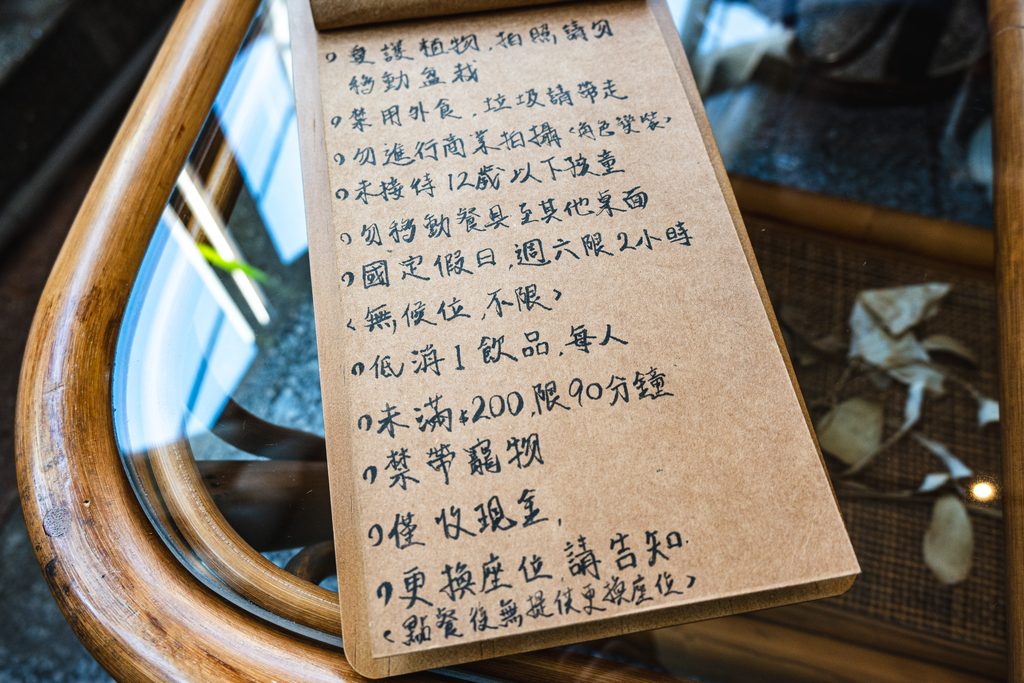 愛護植物,拍照請勿
移動盆栽
禁用外食,垃圾請帶走
勿進行商業拍攝<角色變裝>
未接待12歲以下孩童
勿移動餐具至其他桌面
國定假日,週六限2小時
<無候位,不限>
低消1飲品,每人
未滿$200,限90分鐘
禁帶寵物
僅收現金,
更換座位,請告知.
<點餐後無提供更換座位>